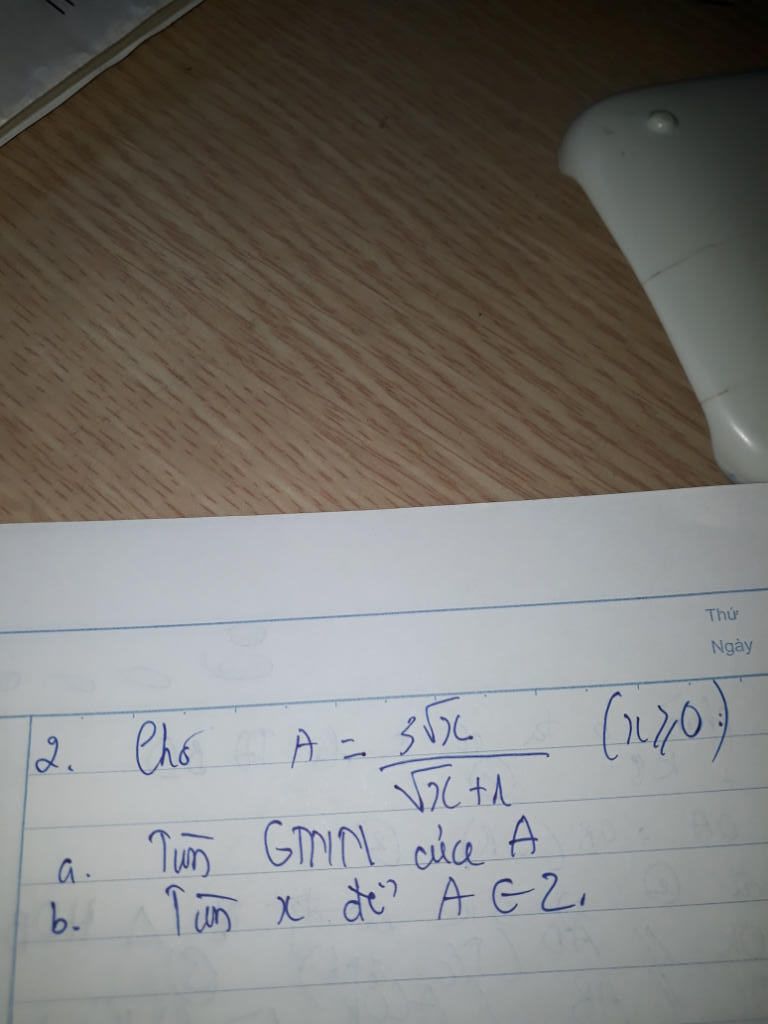 Thứ
Ngày
2. Cho A = 3√x / (√x + 1) (x ≥ 0)
a. Tìm GTNN của A
b. Tìm x để A ∈ Z.